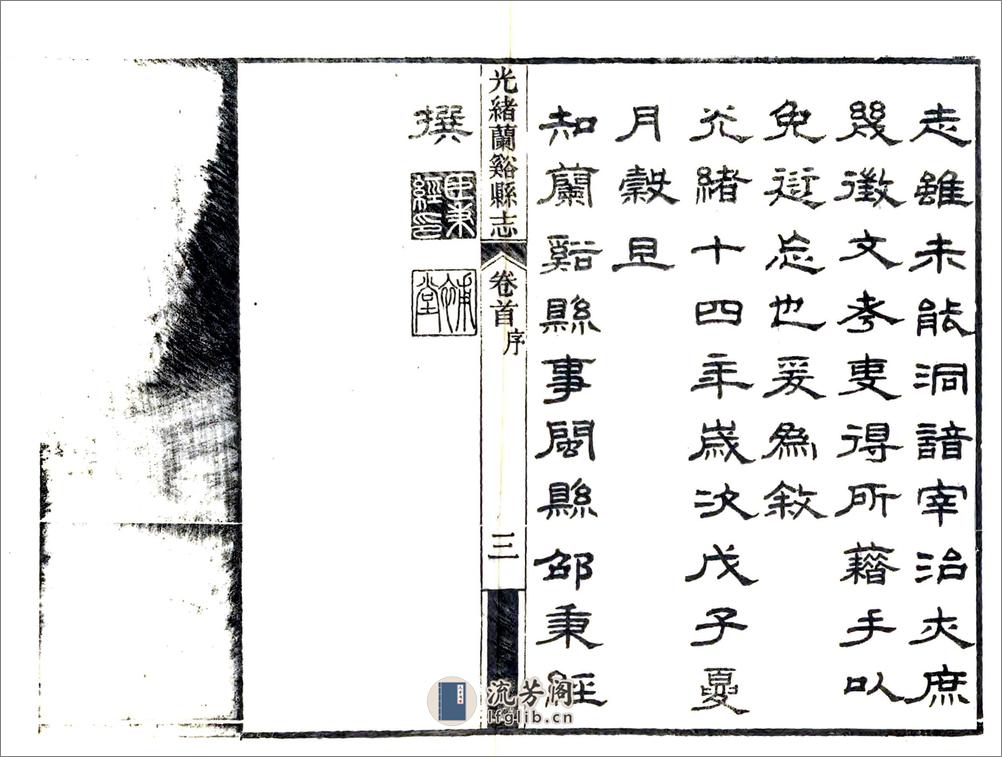 志雖未能洞諳宰治亦庶
幾徵文考叓得所藉手以
免愆忘也爰為敘
光緒十四年歲次戊子夏
月穀旦
知蘭谿縣事閩縣邵秉經
光緒蘭谿縣志 卷首 序 三
撰
臣秉經印
堂
流芳阁
lfglib.cn